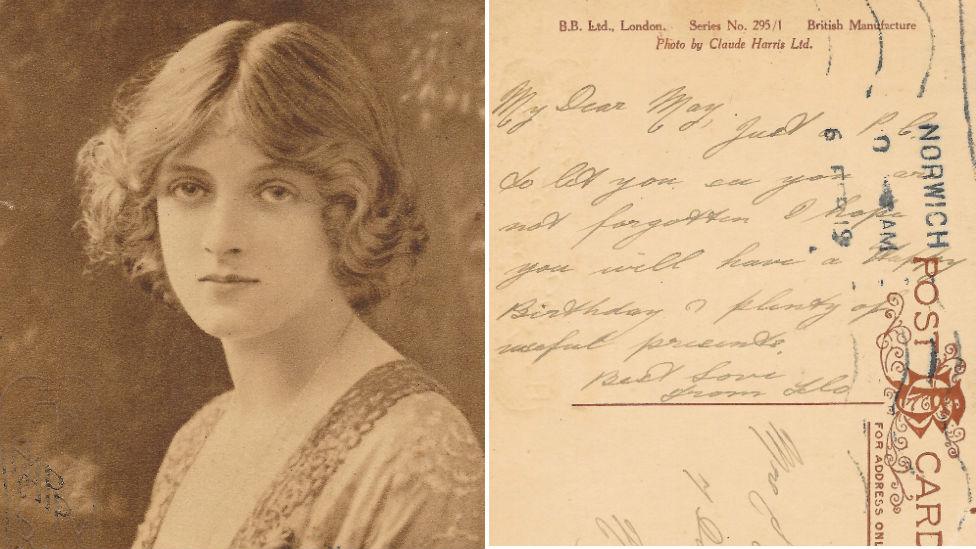 B.B. Ltd., London. Series No. 295/1 British Manufacture
Photo by Claude Harris Ltd.
My Dear May,
Just a P.C.
to let you you are
not forgotten I hope
you will have a Happy
Birthday & plenty of
useful presents.
Best Love
from
NORWICH
9
AM
POST CARD
FOR ADDRESS ONL